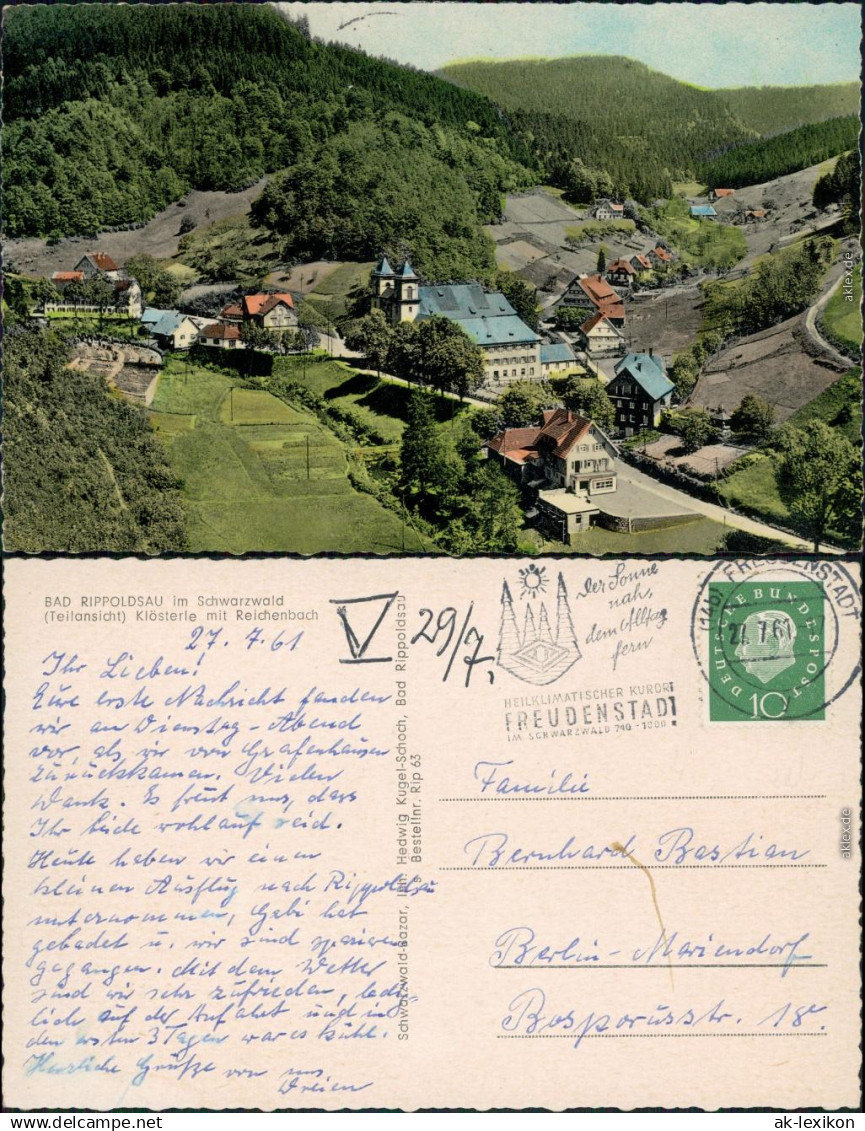 BAD RIPPOLDSAU im Schwarzwald
(Teilansicht) Klösterle mit Reichenbach
27. 7. 61
Ihr Lieben!
Eure erste Nachricht fanden
wir am Dienstag-Abend
vor, als wir von Grafenhausen
zurückkamen. Vielen
Dank. Es freut uns, dass
Ihr beide wohlauf seid.
Heute haben wir einen
kleinen Ausflug nach Rippoldsau
unternommen, Gabi hat
gebadet u. wir sind spazieren
gegangen. Mit dem Wetter
sind wir sehr zufrieden, ledig-
lich auf der Anfahrt und in
den ersten 3 Tagen war es kühl.
Herzliche Grüße von uns
Dreien
Schwarzwald-Bazar, Inh. Hedwig Kugel-Schoch, Bad Rippoldsau
Bestellnr. Rip 63
V
29/7.
Der Sonne
nah,
dem Alltag
fern
HEILKLIMATISCHER KURORT
FREUDENSTADT
IM SCHWARZWALD 740-1000
(14b) FREUDENSTADT
27. 7. 61
DEUTSCHE BUNDESPOST
10
Familie
Bernhard Bastian
Berlin-Mariendorf
Bosporusstr. 18
aklex.de
aklex.de
aklex.de
www.ak-ansichtskarten.de
ak-lexikon